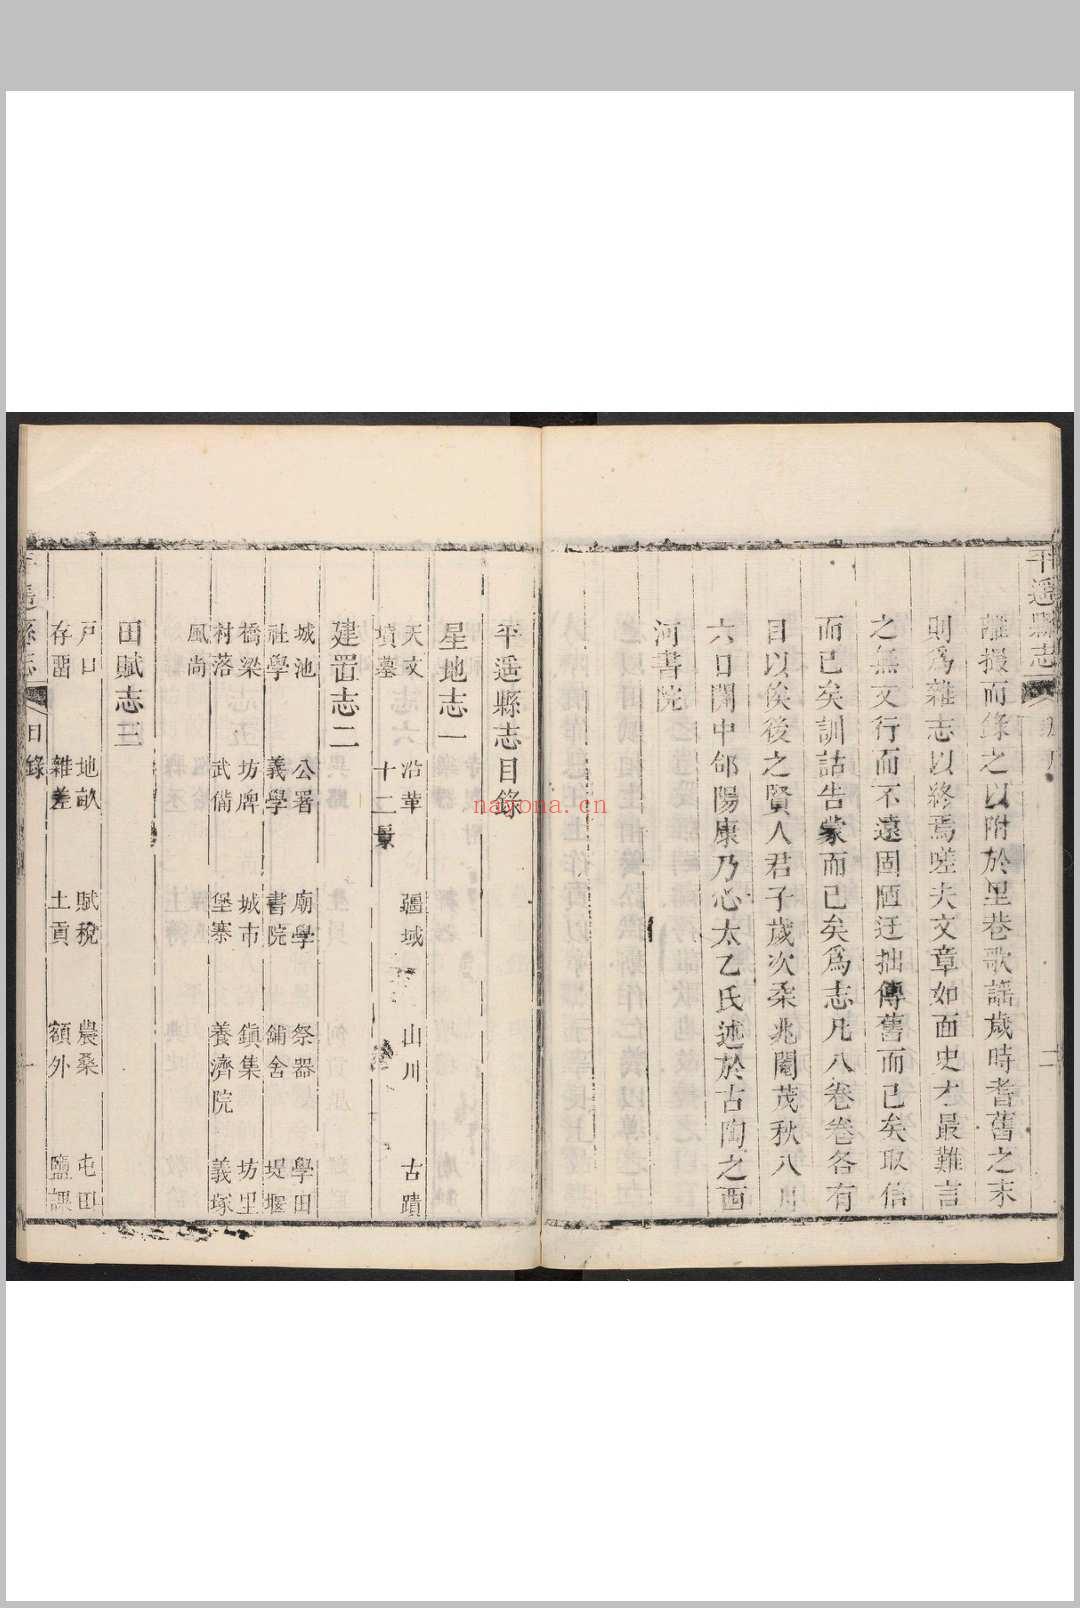 平遥縣志
二
離撥而錄之以附於里巷歌謡歲時耆舊之末
則爲雜志以終焉嗟夫文章如面史才最難言
之無文行而不遠固陋迂拙傳舊而已矣取信
而已矣訓詁告蒙而已矣爲志凡八卷卷各有
目以俟後之賢人君子歲次柔兆閹茂秋八月
六日關中郃陽康乃心太乙氏述於古陶之西
河書院
平遥縣志目錄
星地志一
天文 沿革 疆域 山川 古蹟
墳墓 十二景
建置志二
城池 公署 廟學 祭器 學田
社學 義學 書院 鋪舍 堤堰
橋梁 坊牌 城市 鎮集 坊里
村落 武備 堡寨 養濟院 義塚
風尚
田賦志三
戸口 地畝 賦稅 農桑 屯田
存畱 雜差 土貢 額外 鹽課
遥縣志 目錄 一
nayona.cn